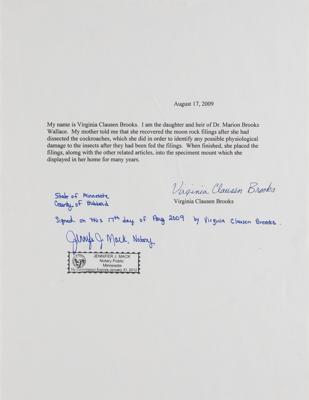 August 17, 2009
My name is Virginia Clausen Brooks. I am the daughter and heir of Dr. Marion Brooks
Wallace. My mother told me that she recovered the moon rock filings after she had
dissected the cockroaches, which she did in order to identify any possible physiological
damage to the insects after they had been fed the filings. When finished, she placed the
filings, along with the other related articles, into the speciment mount which she
displayed in her home for many years.
Virginia Clausen Brooks
Virginia Clausen Brooks
State of Minnesota
County of Hubbard
Signed on this 17th day of Aug 2009 by Virginia Clausen Brooks.
Jennifer J. Mack, Notary
JENNIFER J. MACK
Notary Public
Minnesota
My Commission Expires January 31, 2012